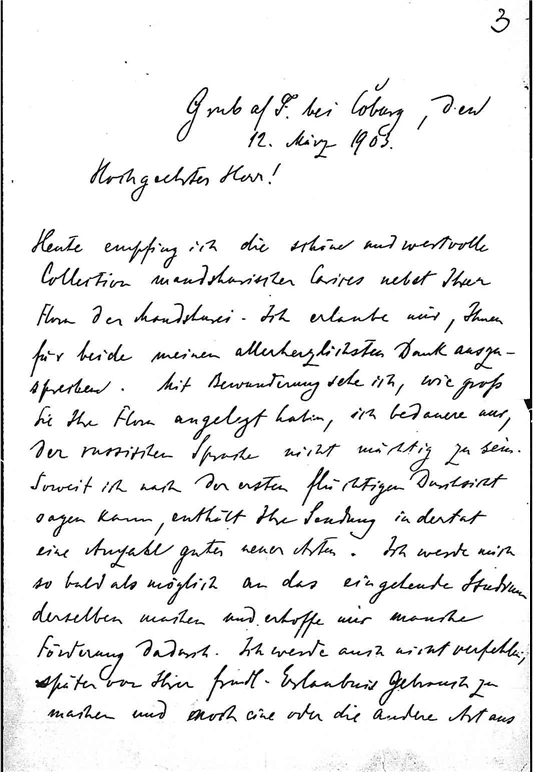 3
Grub a/F. bei Coburg, den
12. März 1903.
Hochgeehrter Herr!
Heute empfing ich die schöne und wertvolle
Collection mandshurischer Carices nebst Ihrer
Flora der Mandshurei. Ich erlaube mir, Ihnen
für beide meinen allerherzlichsten Dank auszu-
sprechen. Mit Bewunderung sehe ich, wie groß
Sie Ihre Flora angelegt haben, ich bedauere nur,
der russischen Sprache nicht mächtig zu sein.
Soweit ich nach der ersten flüchtigen Durchsicht
sagen kann, enthält Ihre Sendung in der tat
eine Anzahl guter neuer Arten. Ich werde mich
so bald als möglich an das eingehende Studium
derselben machen und erhoffe mir manche
Förderung dadurch. Ich werde auch nicht verfehlen,
später von Ihrer frndl. Erlaubnis Gebrauch zu
machen und noch eine oder die andere Art aus